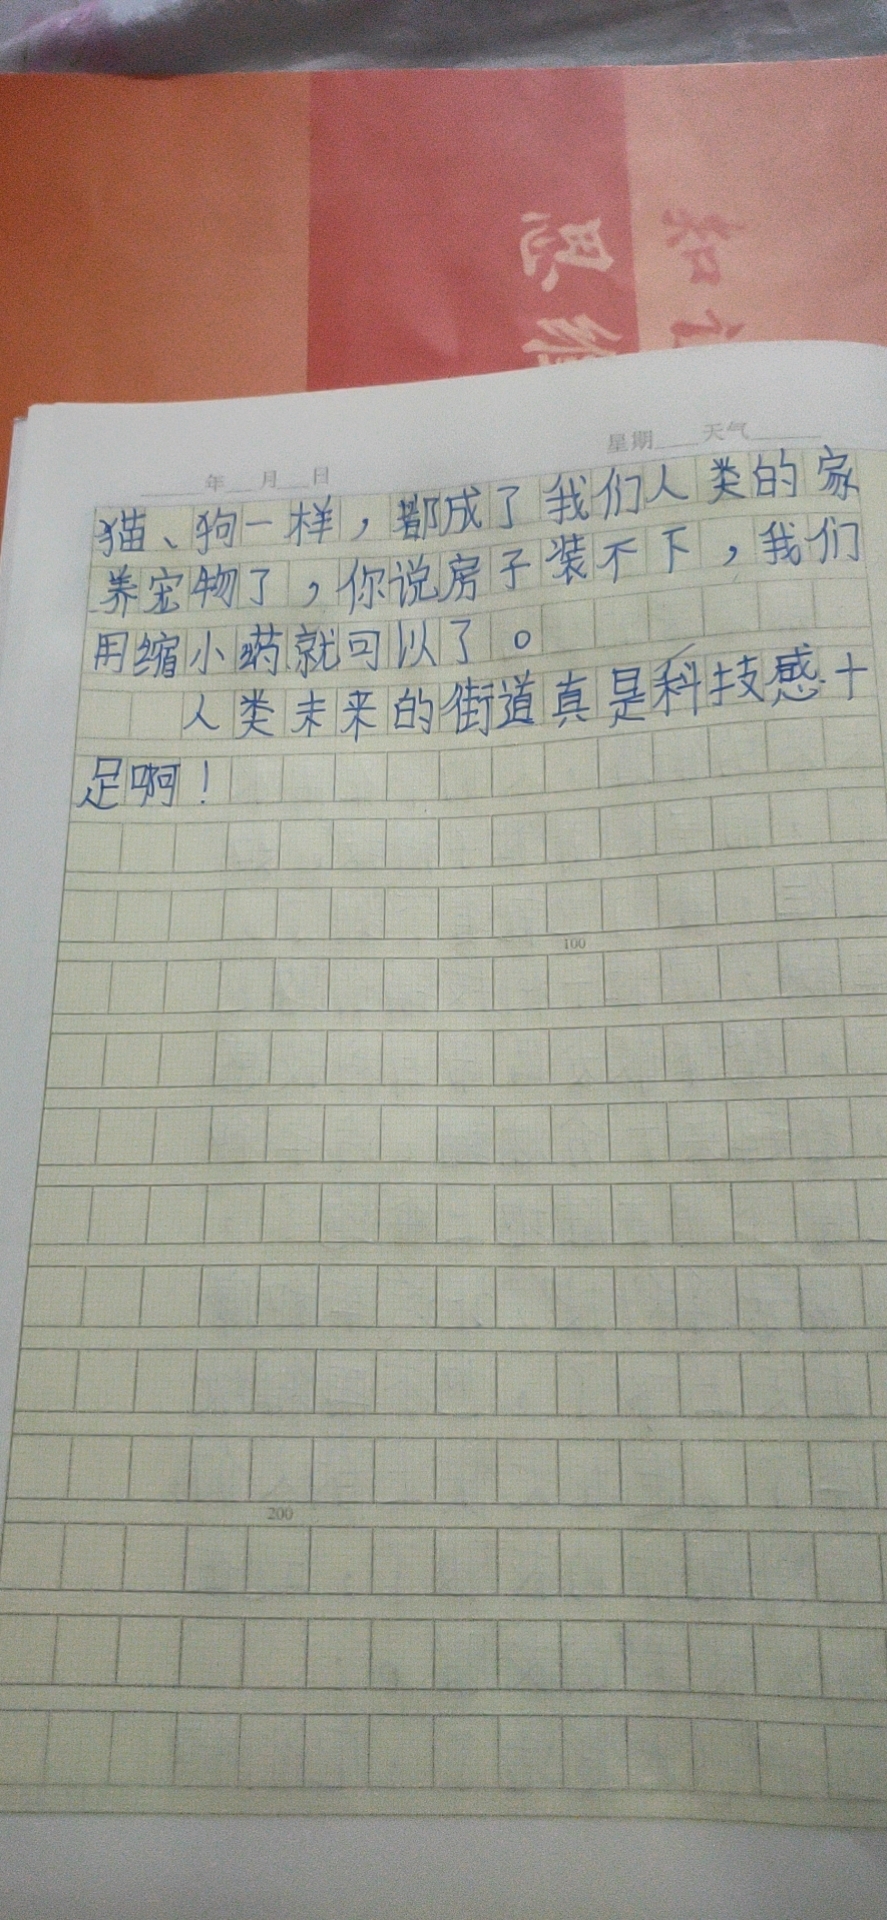 思维
知识
年 月 日 星期 天气
猫、狗一样，都成了我们人类的家
养宠物了，你说房子装不下，我们
用缩小药就可以了。
人类未来的街道真是科技感十
足啊！
100
200